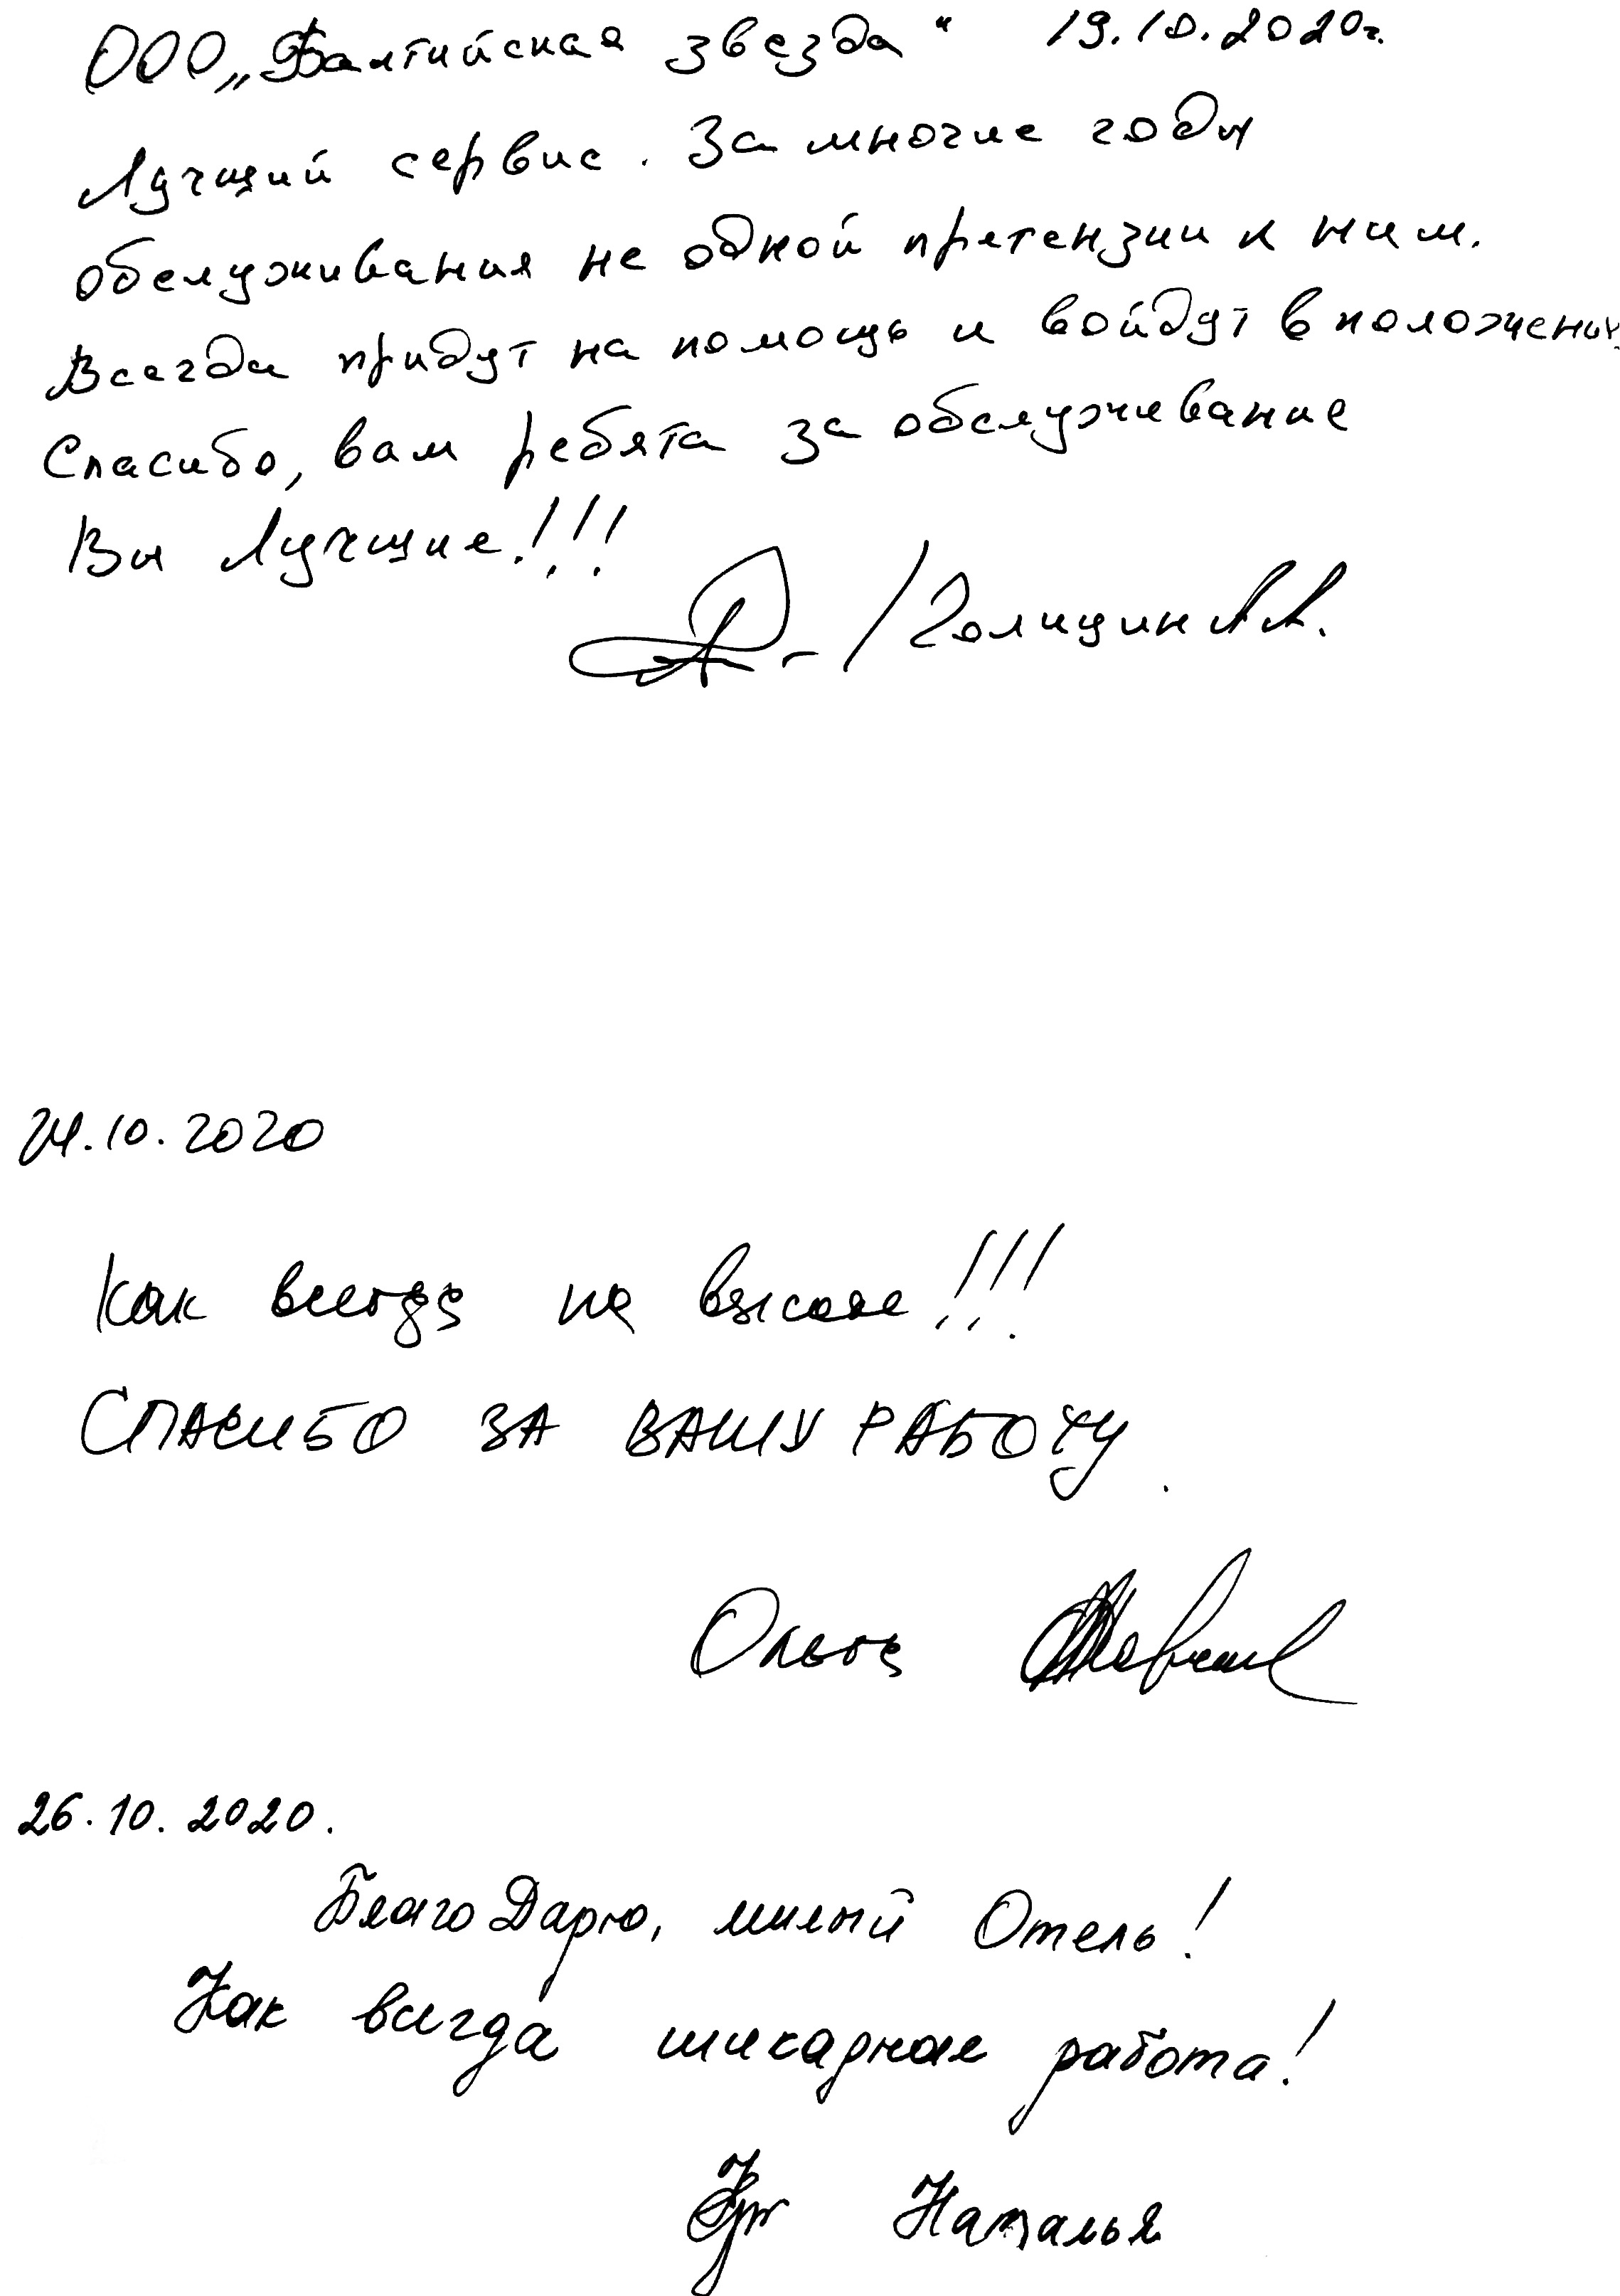 ООО „Балтийская звезда“ 19.10.2020г.
Лучщий сервис. За многие годы
обслуживания не одной претензии к ним.
Всегда придут на помощь и войдут в положение.
Спасибо, вам ребята за обслуживание
Вы Лучщие!!!
/Голицин А А.
24.10.2020
Как всегда на высоте!!!
СПАСИБО ЗА ВАШУ РАБОТУ.
Ольга
26.10.2020.
БлагоДарю, милый Отель!
Как всегда шикарная работа!
Наталья